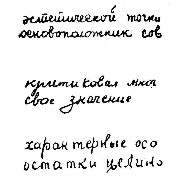 эстетической точки
основоположник сов
критиковал мног
свое значение
характерные осо
остатки целино